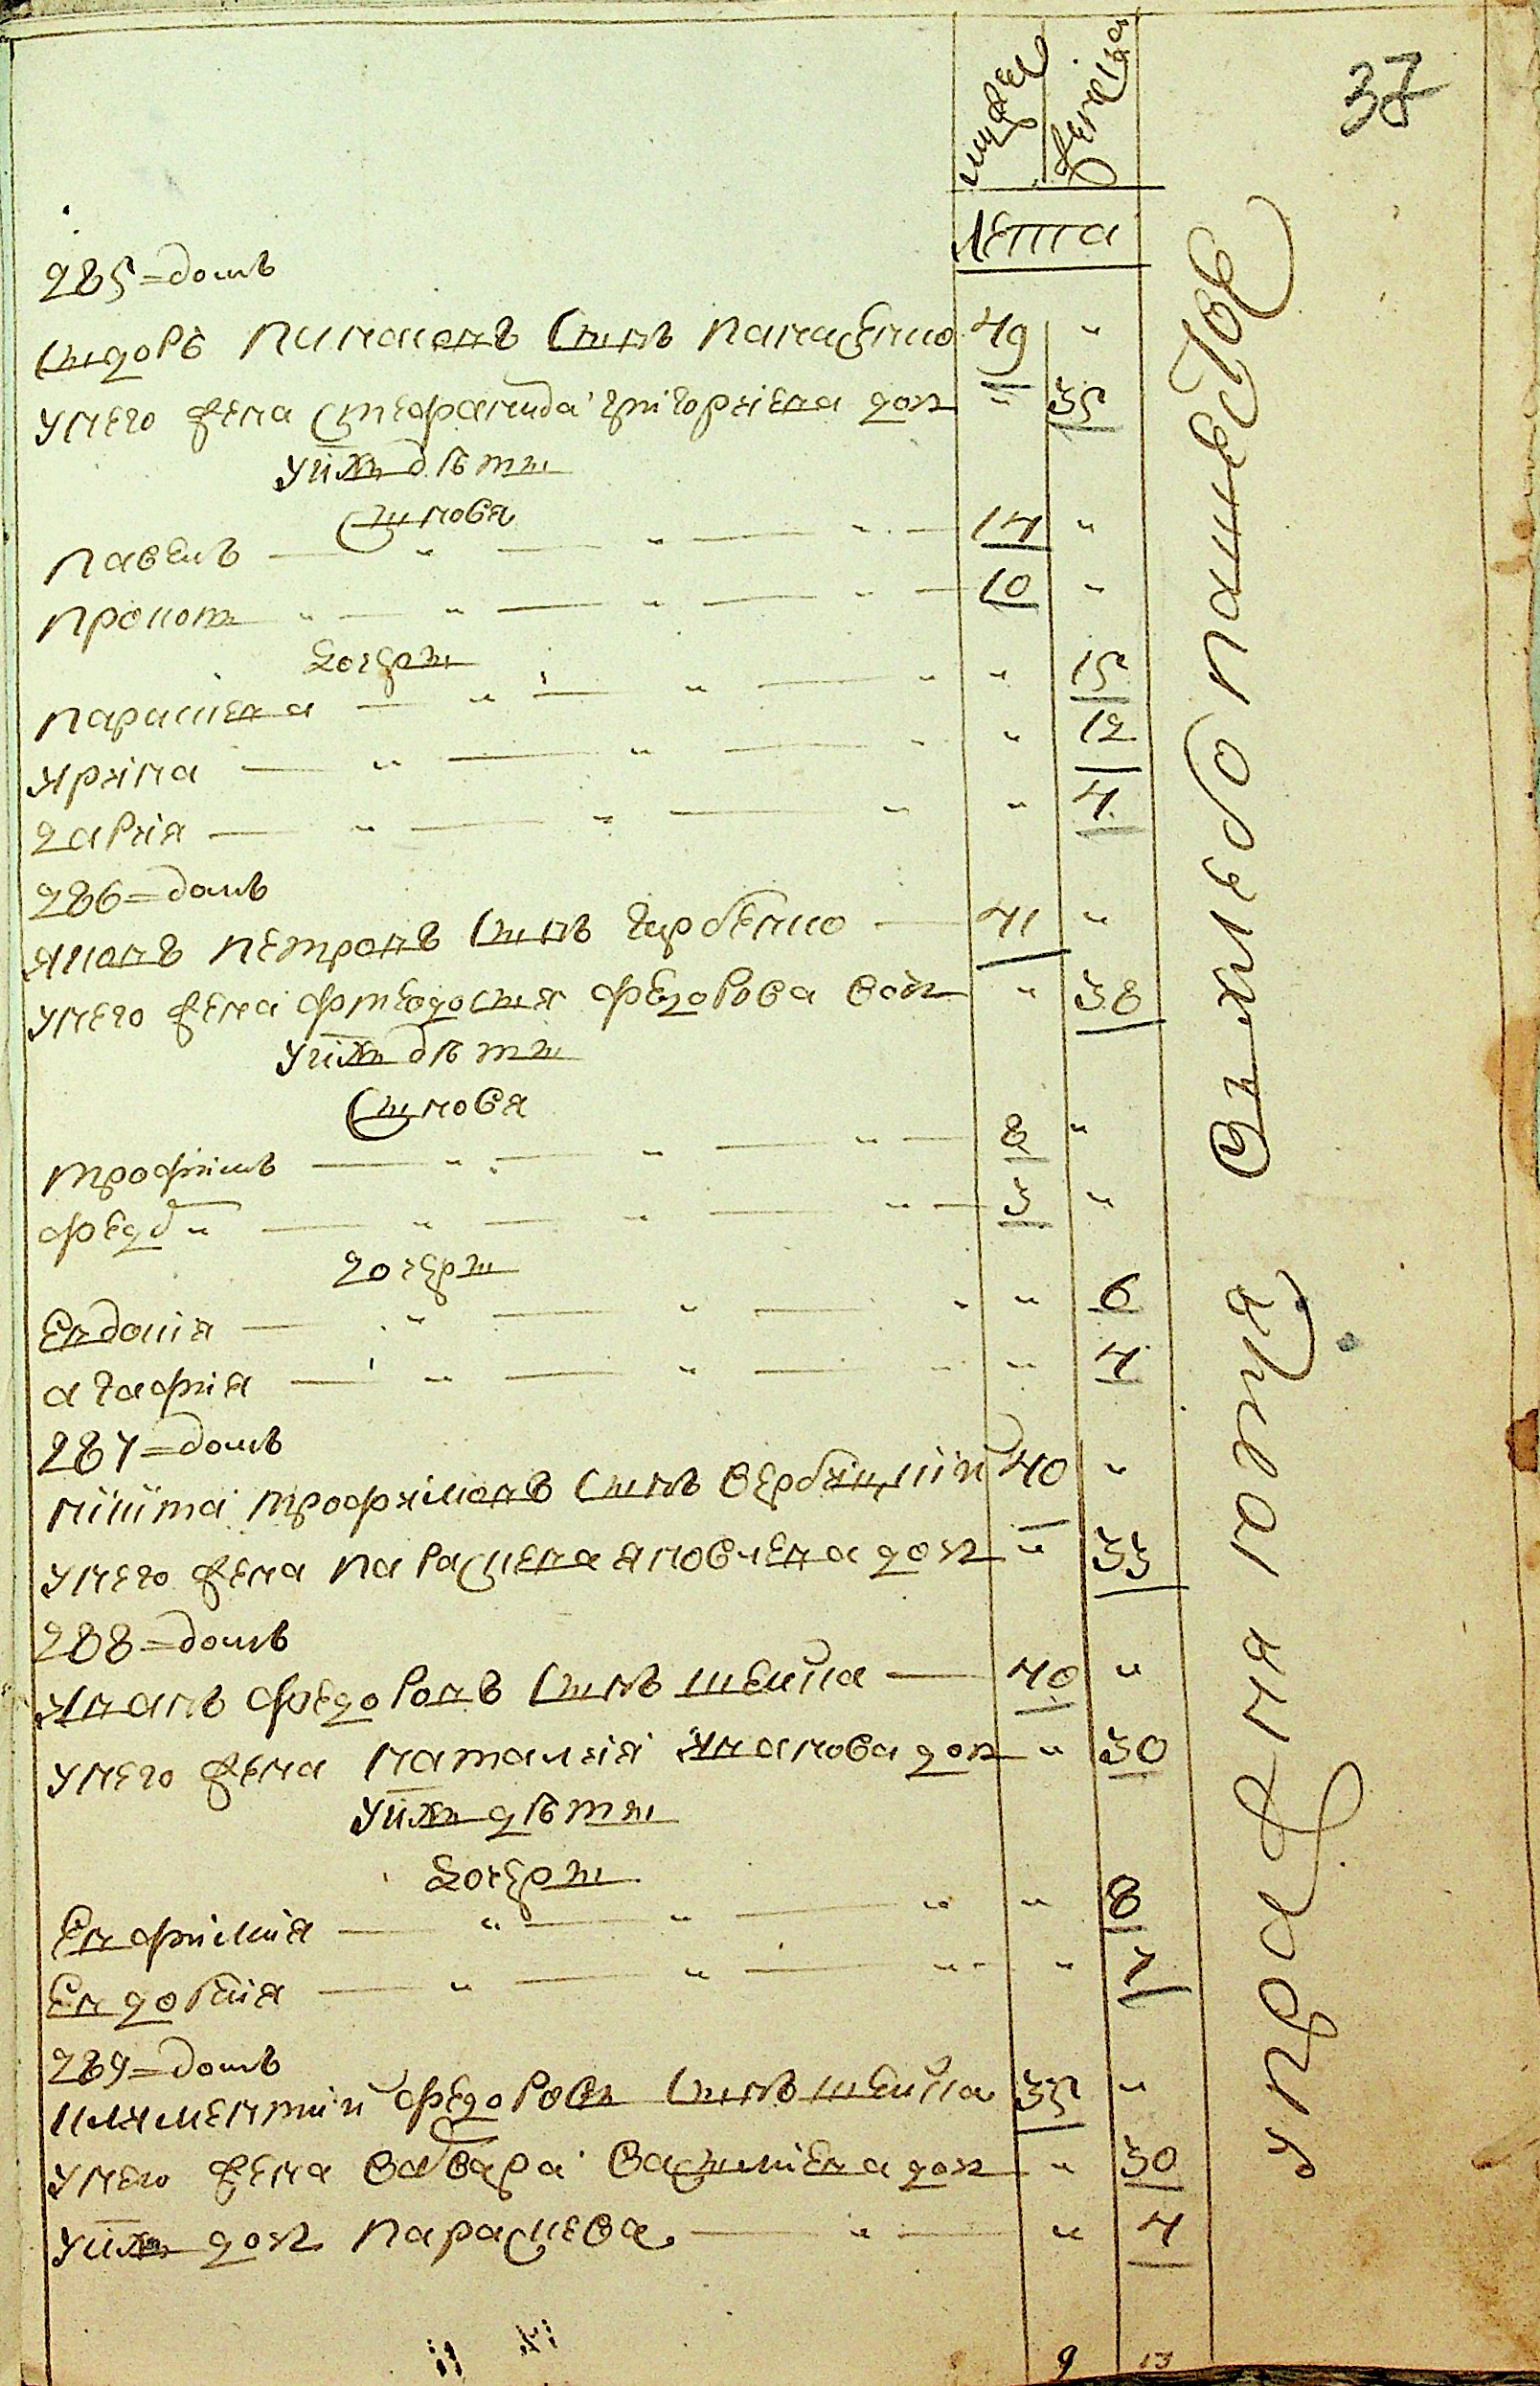 37
мужес женска
лета
285=домъ
Сидоръ Пилиповъ Синъ Панасенко 49 "
Унего жена Степанида Григориева доч " 35
Уних дѣти
Синовя
Павелъ — " — " — 14 "
Прокоп " — " — " — " — 10 "
дочери
Парасцева — " — " — " " 15
Ярина — " — " — " " 12
Дария — " — " — " " 4
286=домъ
Яковъ Петровъ Синъ Гарбенко — 41 "
Унего жена Фтеодосия Федорова доч " 38
Уних дѣти
Синовя
Трофимъ — " — " — " — 8 "
Федор " — " — " — " — 3 "
дочери
Евдокія — " — " — " " 6
Агафия — " — " — " " 4
287=домъ
Нікіта Трофимовъ Синъ Вербицкій 40 "
Унего жена Парасцева Яковлева доч " 33
288=домъ
Иванъ Федоровъ Синъ Шейка — 40 "
Унего жена Наталия Иванова доч " 30
Уних дѣти
дочери
Евфимия — " — " — " " 8
Евдокия — " — " — " " 1
289=домъ
Климентий Федоров Синъ Шейка 35 "
Унего жена Варвара Василиева доч " 30
Уних доч Парасцева — " — " 4
9 13